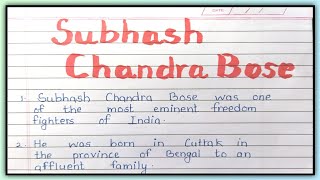 Subhash
Chandra Bose
1. Subhash Chandra Bose was one
of the most eminent freedom
fighters of India.
2. He was born in Cuttak in
the province of Bengal to an
affluent family.